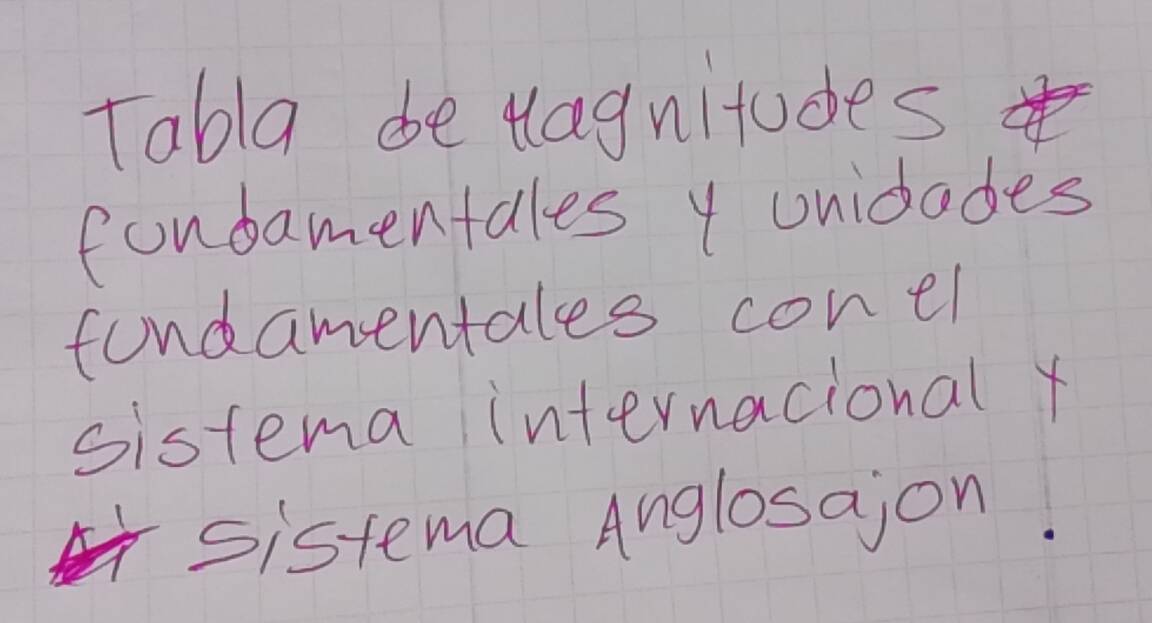 Tabla de Magnitudes
fundamentales y unidades
fundamentales con el
sistema internacional y
sistema Anglosajon.